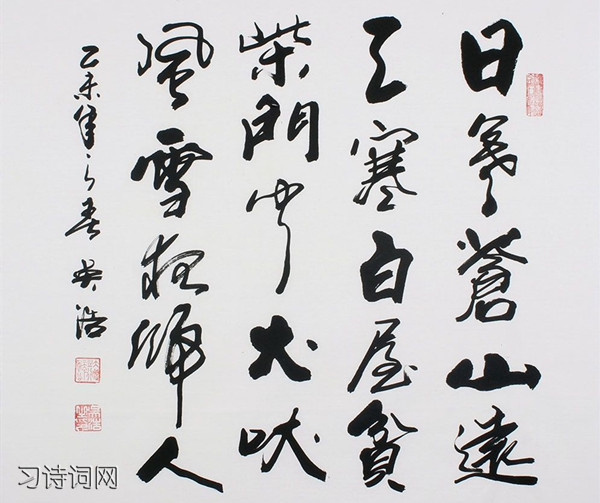 日暮蒼山遠
天寒白屋貧
柴門聞犬吠
風雪夜歸人
乙未年之春 吳浩
习诗词网